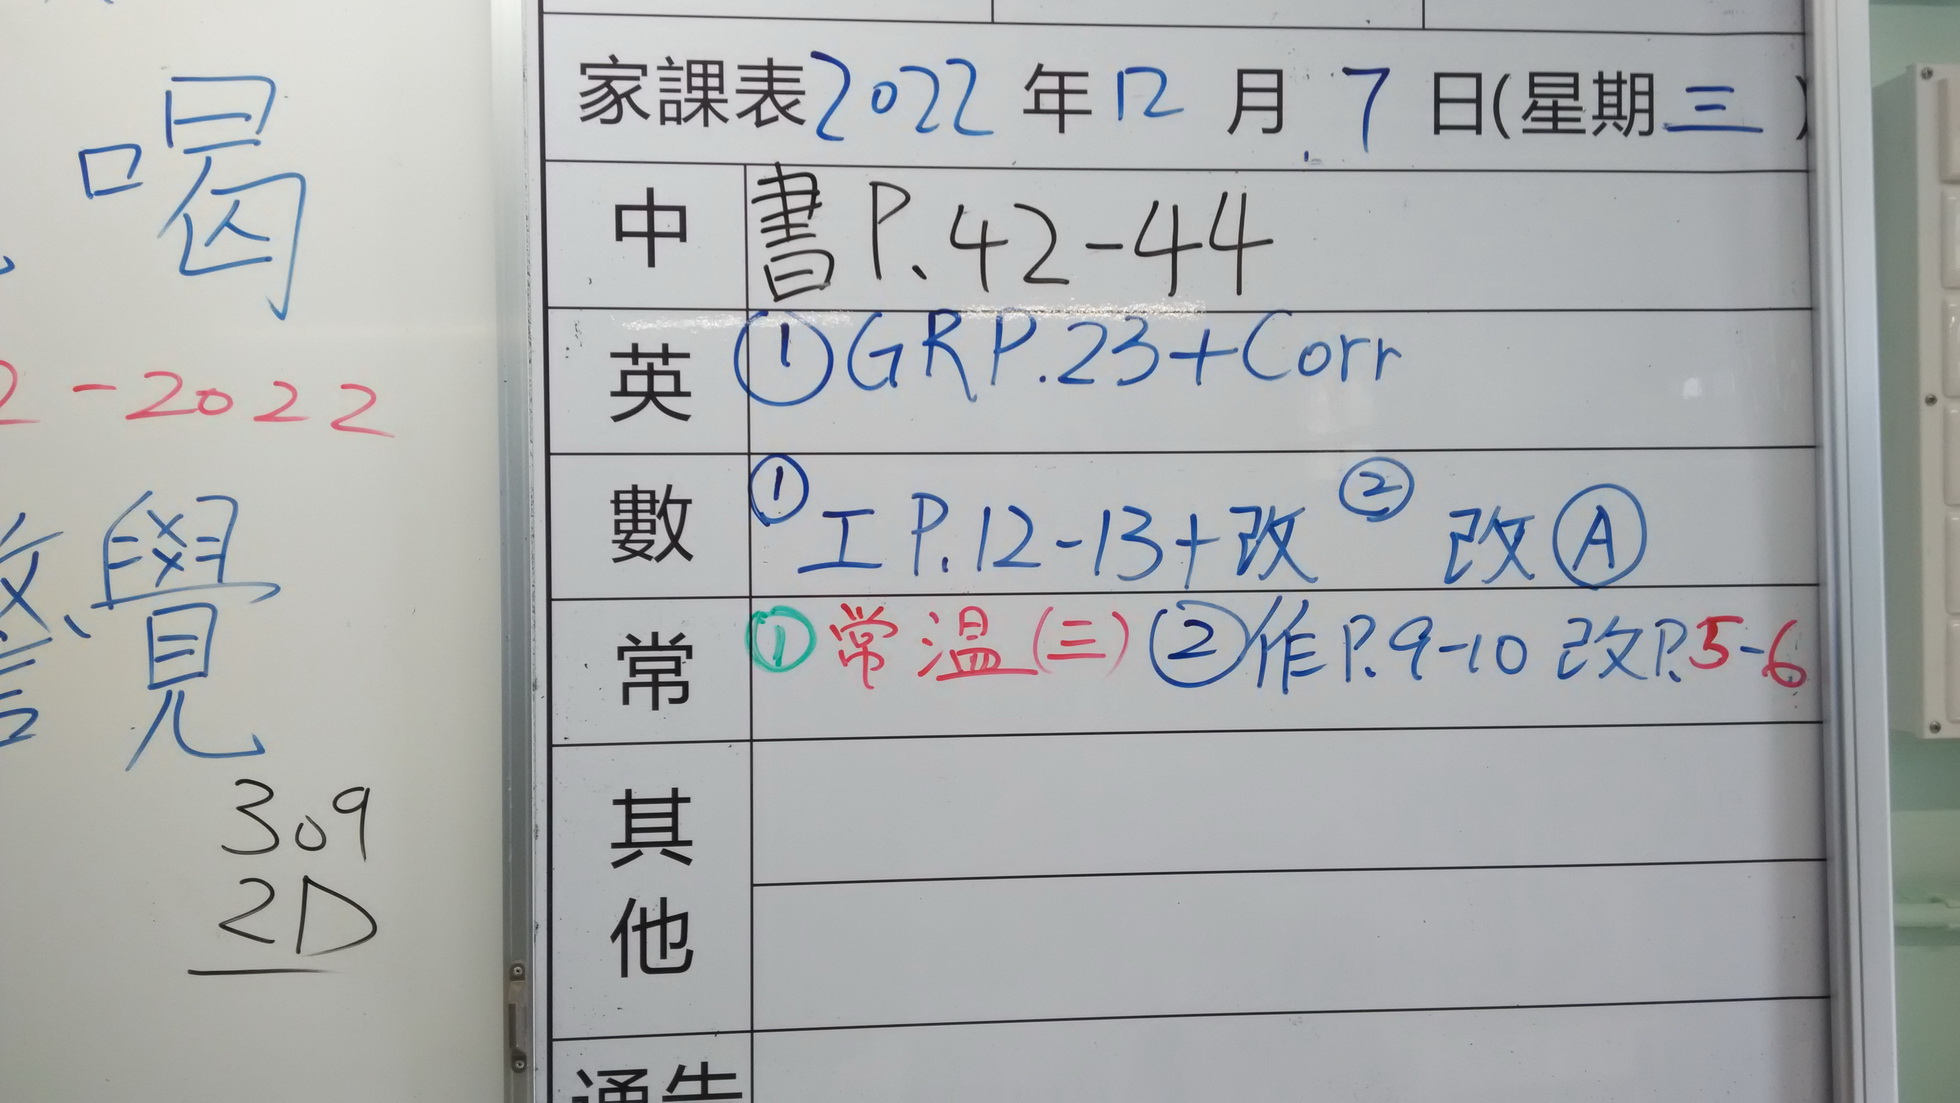 喝
2-2022
警覺
309
2D
家課表2022年12月7日(星期三)
中 書P.42-44
英 ①GR P.23+Corr
數 ①工P.12-13+改 ②改Ⓐ
常 ①常温(三) ②作P.9-10 改P.5-6
其他
通告